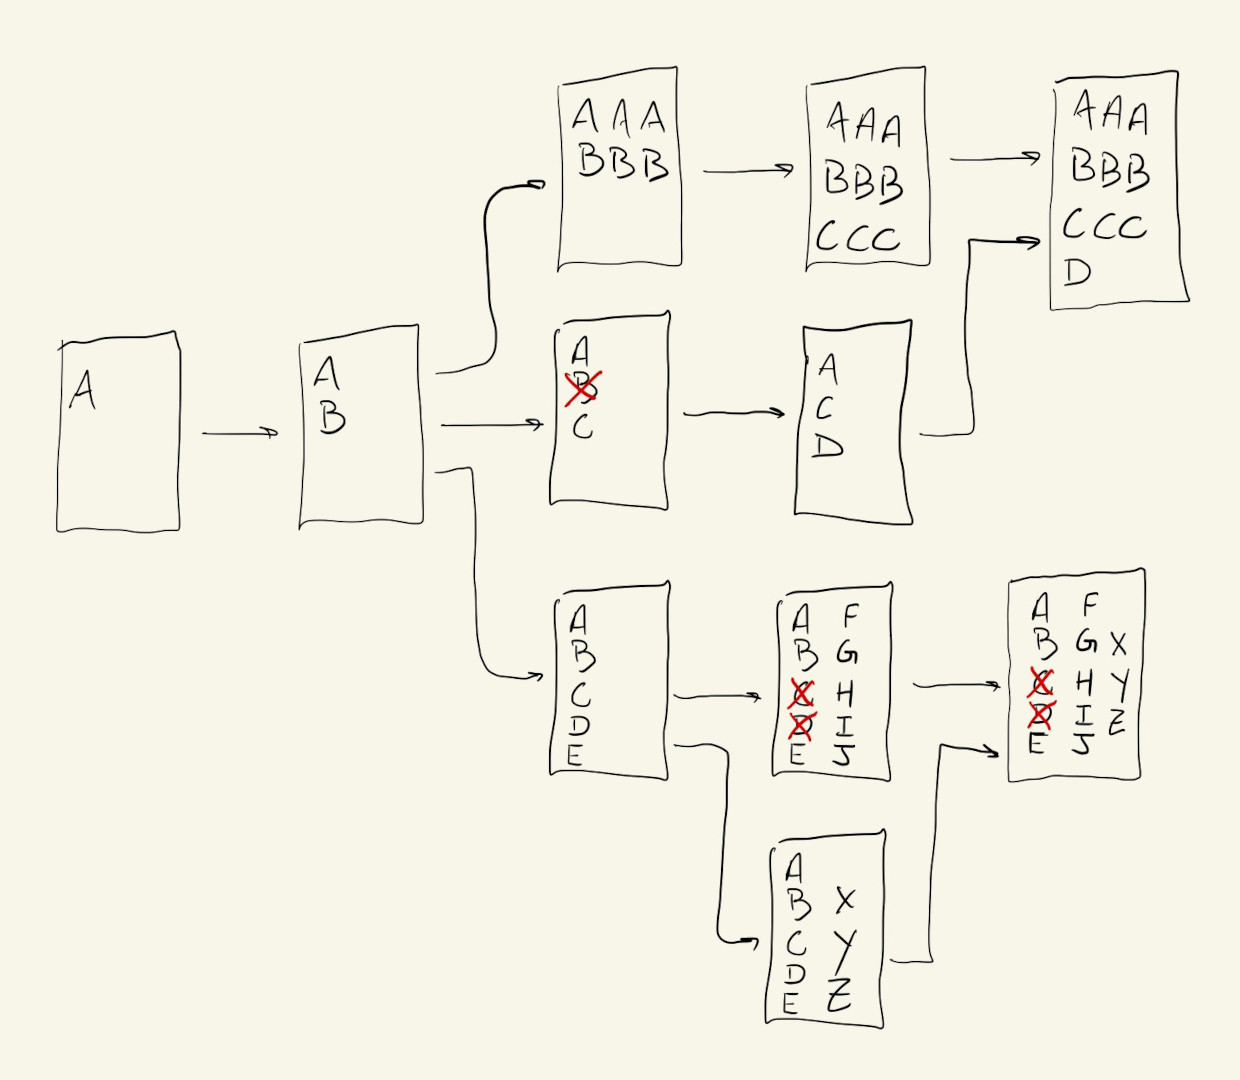 A
A
B
A A A
B B B
A A A
B B B
C C C
A A A
B B B
C C C
D
A
B
C
A
C
D
A
B
C
D
E
A F
B G
C H
D I
E J
A F
B G X
C H Y
D I Z
E J
A
B X
C Y
D Z
E